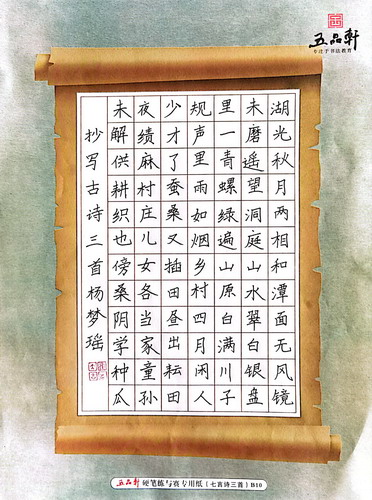 五品軒
专注于书法教育
湖光秋月两相和潭面无风镜
未磨遥望洞庭山水翠白银盘
里一青螺绿遍山原白满川子
规声里雨如烟乡村四月闲人
少才了蚕桑又插田昼出耘田
夜绩麻村庄儿女各当家童孙
未解供耕织也傍桑阴学种瓜
抄写古诗三首杨梦瑶
五品軒 硬笔练与赛专用纸（七言诗三首）B10